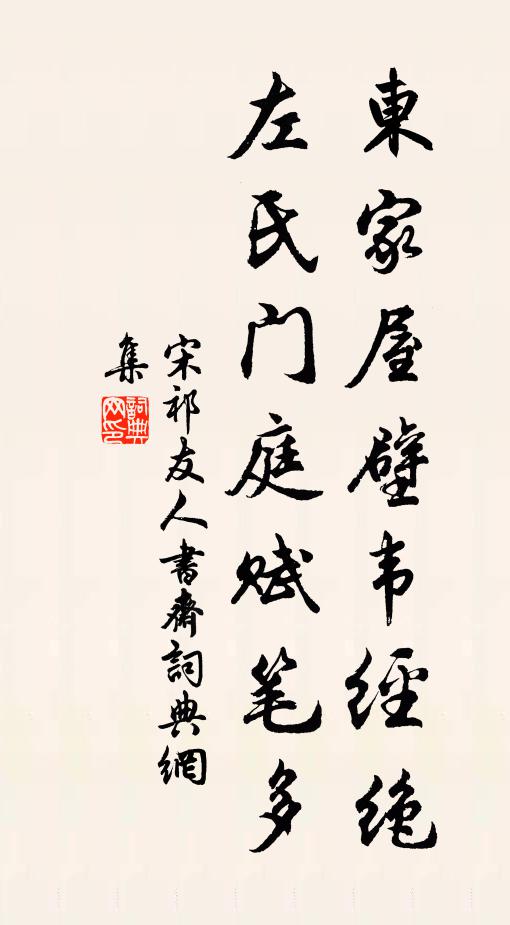 東家屋壁韦經绝
左氏門庭赋笔多
宋祁友人書齋詞典網
集
詞典網印